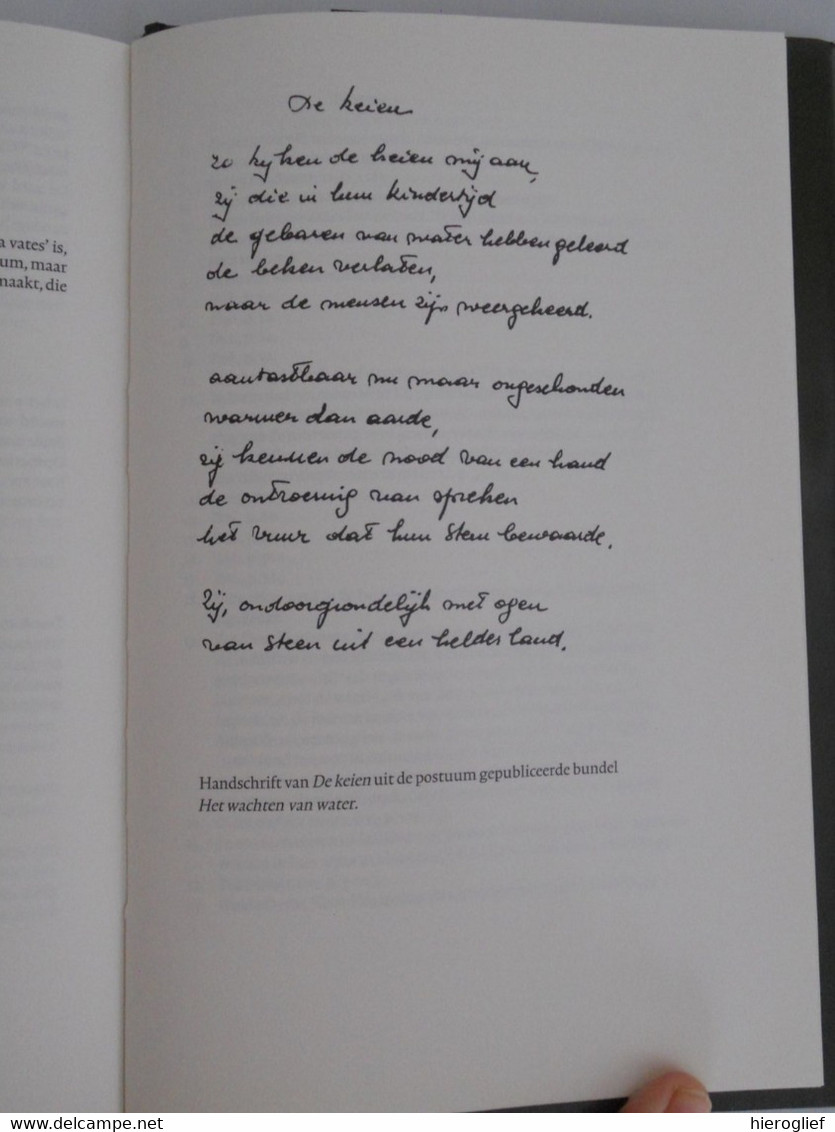 a vates' is,
um, maar
maakt, die
De keien
zo kijken de keien mij aan,
zij die in hun kindertijd
de gebaren van water hebben geleerd
de beken verlaten,
naar de mensen zijn weergekeerd.
aantastbaar nu maar ongeschonden
warmer dan aarde,
zij kennen de nood van een hand
de ontroering van spreken
het vuur dat hun stem bewaarde.
Zij, ondoorgrondelijk met ogen
van steen uit een helder land.
Handschrift van De keien uit de postuum gepubliceerde bundel
Het wachten van water.
www.delcampe.net
hieroglief